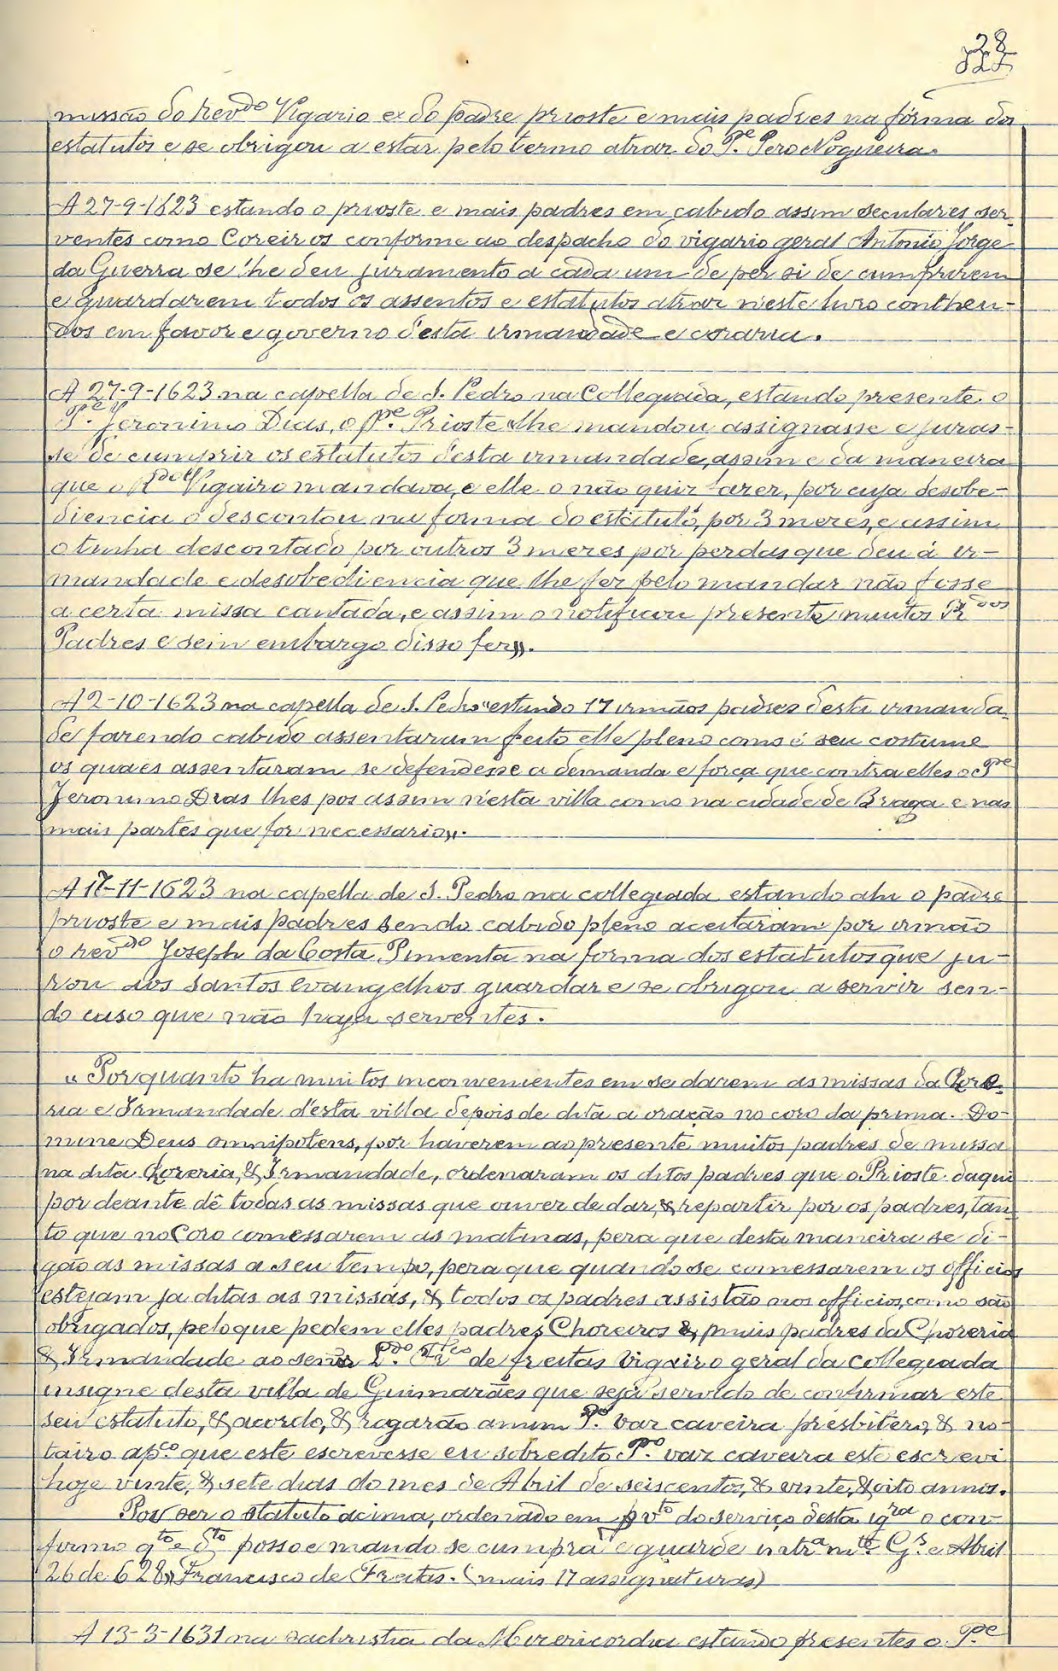 28
missão do revdo Vigario e do padre prioste e mais padres na fórma dos
estatutos e se obrigou a estar pelo termo atraz do Pe. Pero Nogueira.
A 27-9-1623 estando o prioste e mais padres em cabido assim seculares ser-
ventes como Coreiros conforme ao despacho do vigario geral Antonio Jorge
da Guerra se lhe deu juramento a cada um de per si de cumprirem
e guardarem todos os assentos e estatutos atraz n'este livro contheu-
dos em favor e governo d'esta irmandade e coraria.
A 27-9-1623 na capella de S. Pedro na Collegiada, estando presente o
Pe. Jeronimo Dias, o pe. Prioste lhe mandou assignasse e juras-
se de cumprir os estatutos d'esta irmandade, assim e da maneira
que o Rdo Vigairo mandava, e elle o não quiz fazer, por cuja desobe-
diencia o descontou na forma do estatuto, por 3 mezes, e assim
o tinha descontado por outros 3 mezes por perdas que deu á ir-
mandade e desobediencia que lhe fez pelo mandar não fosse
a certa missa cantada, e assim o notificou presente muitos Rdos
Padres e sem embargo disso fez».
A 2-10-1623 na capella de S. Pedro "estando 17 irmãos padres desta irmanda-
de fazendo cabido assentaram feito elle pleno como é seu costume
os quaes assentaram se defendesse a demanda e força que contra elles o Pe
Jeronimo Dias lhes pos assim n'esta villa como na cidade de Braga e nas
mais partes que for necessario».
A 17-11-1623 na capella de S. Pedro na collegiada estando ahi o padre
prioste e mais padres sendo cabido pleno aceitaram por irmão
o revdo Joseph da Costa Pimenta na forma dos estatutos que ju-
rou aos santos evangelhos guardar e se obrigou a servir sen-
do caso que não haja serventes.
« Porquanto ha muitos inconvenientes em se darem as missas da Core-
ria e Irmandade d'esta villa depois de dita a oração no coro da prima. Do-
mine Deus omnipotens, por haverem ao presente muitos padres de missa
na dita Choreria, & Irmandade, ordenaram os ditos padres que o Prioste daqui
por deante dê todas as missas que ouver de dar, & repartir por os padres, tan-
to que no Coro comessarem as matinas, pera que desta maneira se di-
gão as missas a seu tempo, pera que quando se comessarem os officios
estejam ja ditas as missas, & todos os padres assistão nos officios, como são
obrigados, pelo que pedem elles padres Choreiros & mais padres da Choreria
& Irmandade ao senor de freitas Vigairo geral da collegiada
insigne desta villa de Guimarães que seja servido de confirmar este
seu estatuto, & acordo, & rogarão a mim Po. vaz caveira presbitero, & no-
tairo apco. que este escrevesse eu sobredito Po. vaz caveira este escrevi
hoje vinte, & sete dias do mes de Abril de seiscentos, & vinte, & oito annos.
Por ser o statuto acima, ordenado em pvto do serviço desta igra o con-
firmo qto. e dto posso e mando se cumpra e guarde intra mte. Gs. e Abril
26 de 628» Francisco de Freitas. (mais 17 assignaturas)
A 13-3-1631 na sachristia da Misericordia estando presentes o Pe.